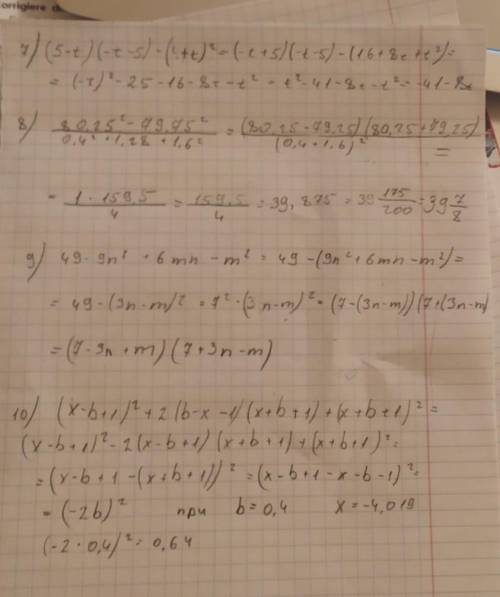 corrigiere d
7) (5-t)(-t-5)-(4+t)² = (-t+5)(-t-5)-(16+8t+t²)=
= (-t)²-25-16-8t-t² = t²-41-8t-t² = -41-8t
8) (80,25²-79,75²)/(0,4²+1,28+1,6²) = (80,25-79,25)(80,25+79,25)/(0,4+1,6)² =
= (1·159,5)/4 = 159,5/4 = 39,875 = 39 175/200 = 39 7/8
9) 49-9n²+6mn-m² = 49-(9n²+6mn-m²)=
= 49-(3n-m)² = 7²-(3n-m)² = (7-(3n-m))(7+(3n-m)
= (7-3n+m)(7+3n-m)
10) (x-b+1)²+2(b-x-1)(x+b+1)+(x+b+1)²=
(x-b+1)²-2(x-b+1)(x+b+1)+(x+b+1)²=
= (x-b+1-(x+b+1))² = (x-b+1-x-b-1)²=
= (-2b)² при b=0,4 x=-4,019
(-2·0,4)²=0,64